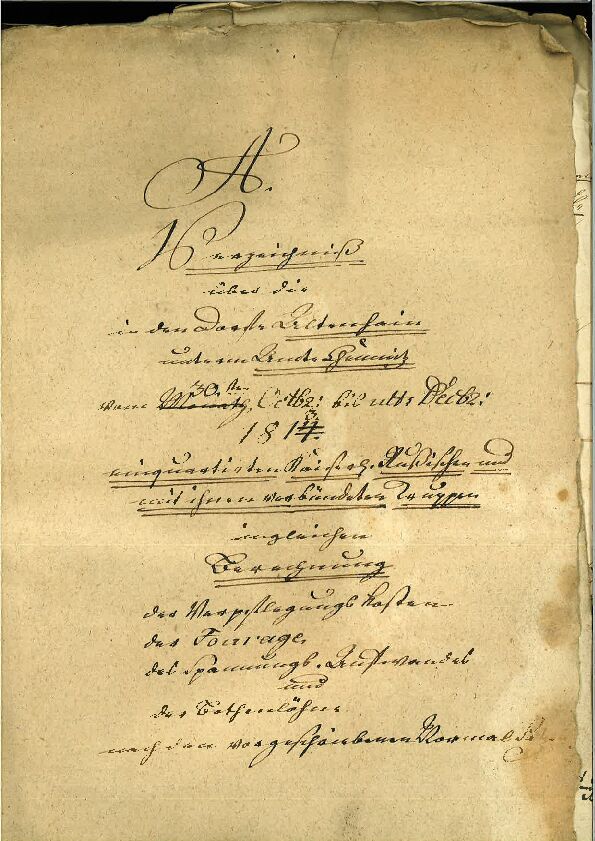 A.
Verzeichniß
über die
in den Dorfe Altenhain
unterm Amte Chemnitz
30. ten
vom Monath, Octbr: bis ult: Decbr:
3.
1814.
einquartirten Kaiserl. Rußischen und
mit ihnen verbündeten Truppen
ingleichen
Berechnung
der Verpflegungs kosten
der Fourage,
des Spannungs-Aufwandes
und
der Bothenlöhne
nach dem vorgeschriebenen Normal